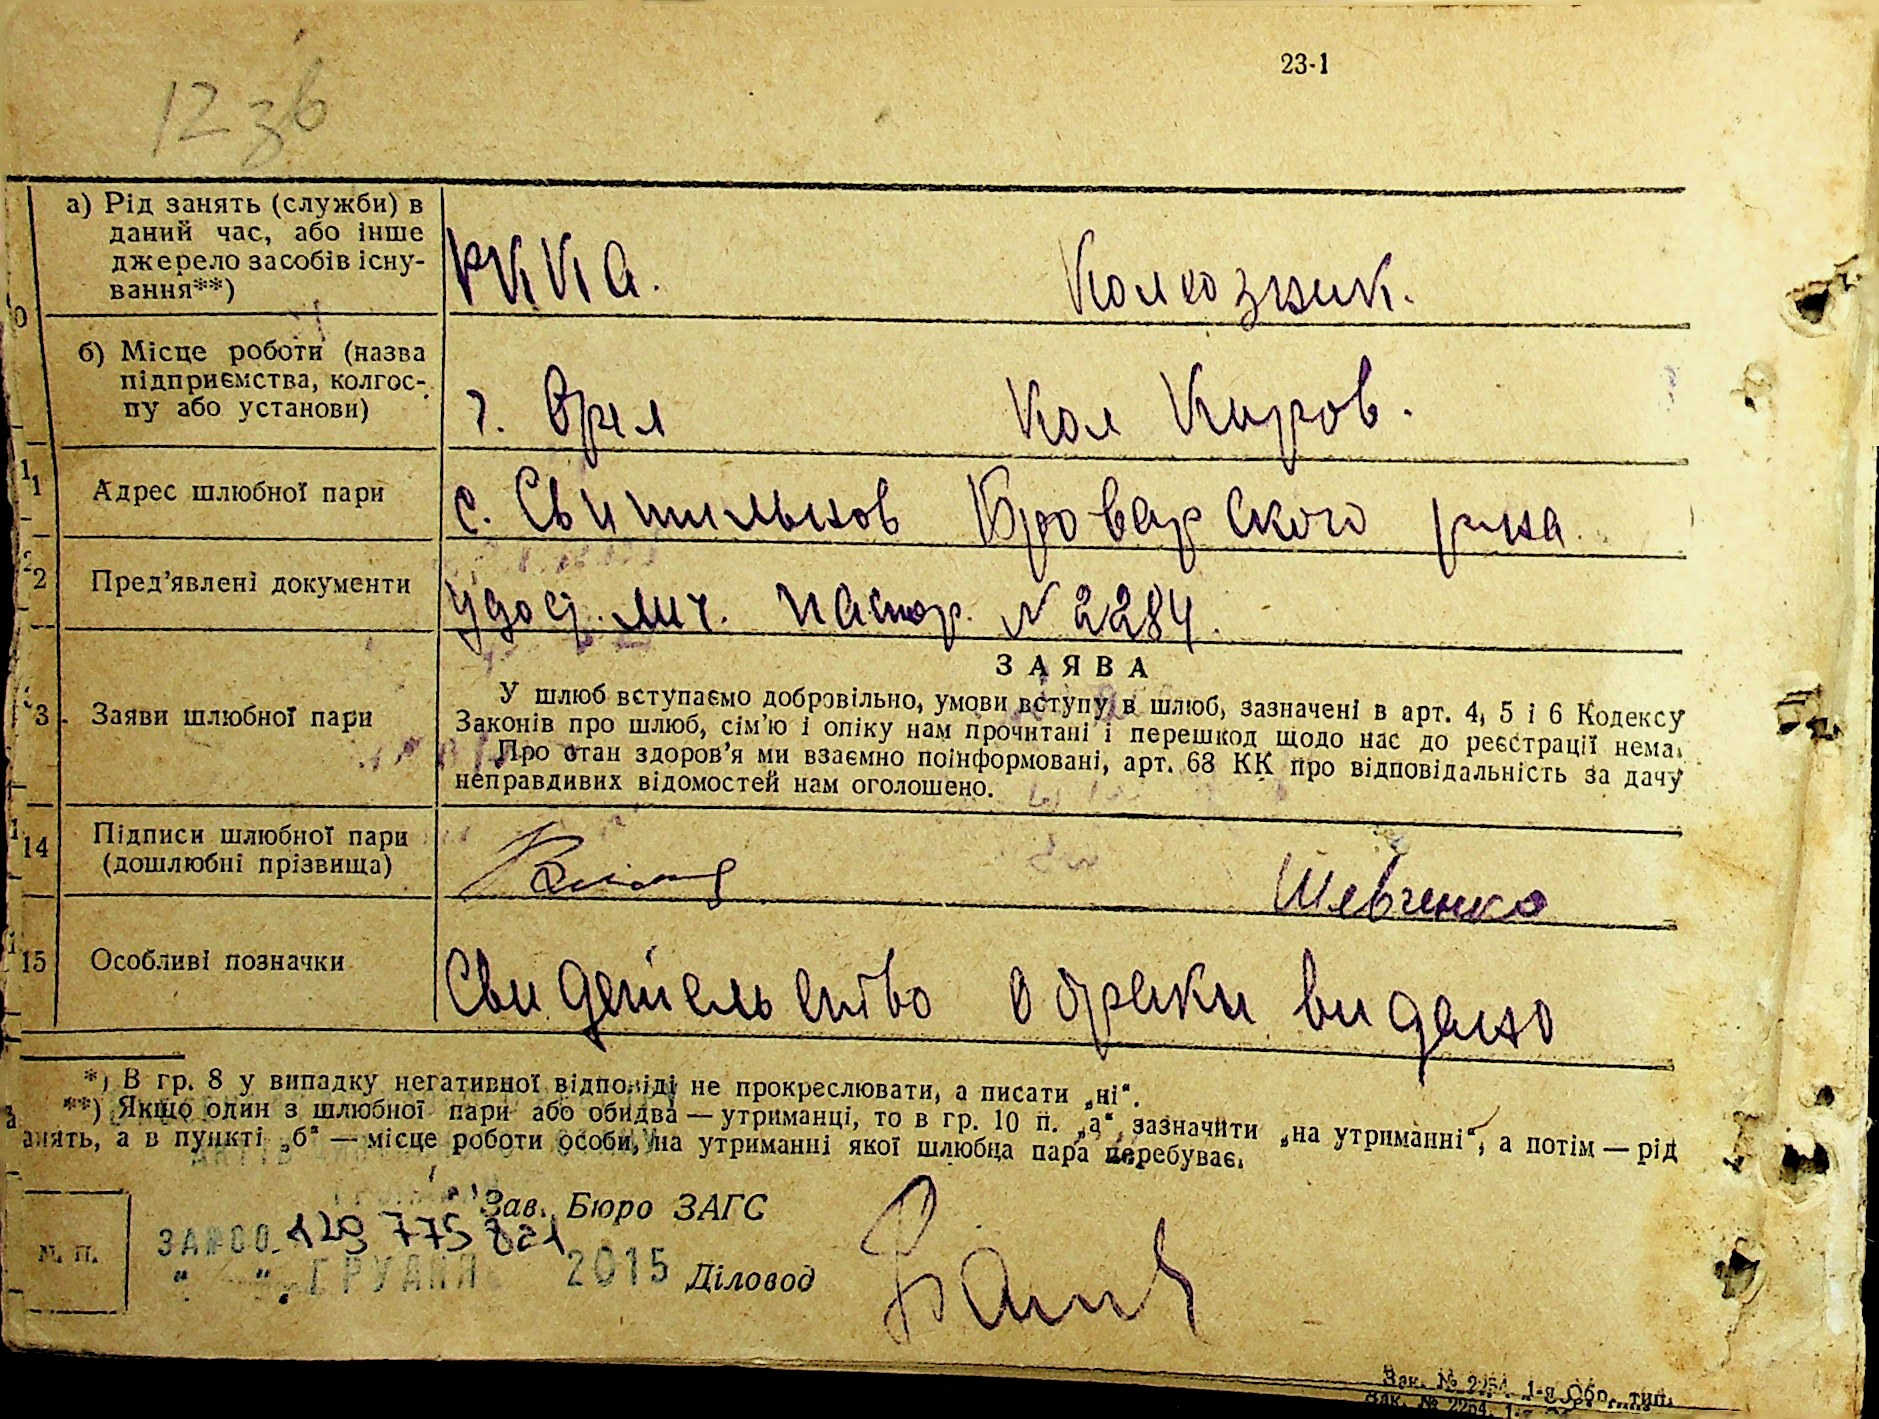 23-1
12 зв
а) Рід занять (служби) в
даний час, або інше
джерело засобів існу-
вання**)
РККА. Колхозник.
б) Місце роботи (назва
підприємства, колгос-
пу або установи)
г. Орел Кол Киров.
11 Адрес шлюбної пари с. Свитильнов Броварского р-на
2 Пред’явлені документи удос. лич. паспор. N 2284.
3 Заяви шлюбної пари
ЗАЯВА
У шлюб вступаємо добровільно, умови вступу в шлюб, зазначені в арт. 4, 5 і 6 Кодексу
Законів про шлюб, сім’ю і опіку нам прочитані і перешкод щодо нас до реєстрації нема.
Про стан здоров’я ми взаємно поінформовані, арт. 68 КК про відповідальність за дачу
неправдивих відомостей нам оголошено.
14 Підписи шлюбної пари
(дошлюбні прізвища)
Шевченко
15 Особливі позначки Свидетельство о браки видано
*) В гр. 8 у випадку негативної відповіді не прокреслювати, а писати „ні“.
**) Якщо один з шлюбної пари або обидва — утриманці, то в гр. 10 п. „а“ зазначити „на утриманні“, а потім — рід
анять, а в пункті „б“ — місце роботи особи, на утриманні якої шлюбна пара перебуває.
Зав. Бюро ЗАГС
М. П.
129 775 821
ГРУДНЯ 2015
Діловод
Зак. № 2264. 1-а Обл. тип.
Зак. № 2264. 1-а